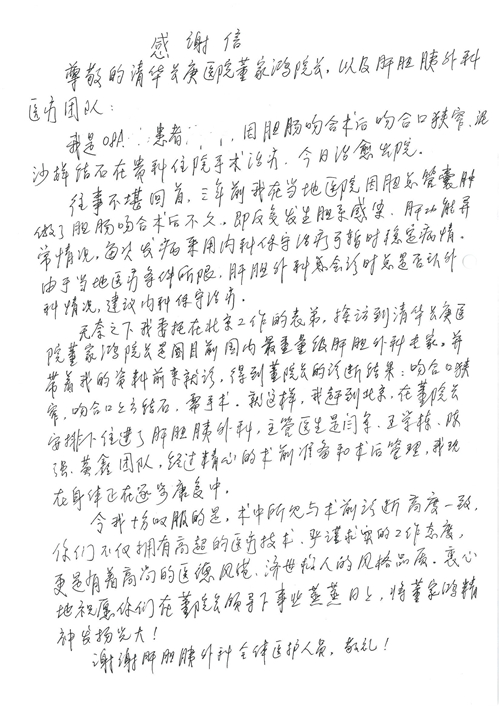 感谢信
尊敬的清华长庚医院董家鸿院长，以及肝胆胰外科
医疗团队：
我是 患者 因胆肠吻合术后吻合口狭窄、泥
沙样结石在贵科住院手术治疗，今日治愈出院。
往事不堪回首，三年前我在当地医院因胆总管囊肿
做了胆肠吻合术后不久，即反复发生胆系感染、肝功能异
常情况，每次发病采用内科保守治疗可暂时稳定病情。
由于当地医疗条件所限，肝胆外科总会诊时总是否认外
科情况，建议内科保守治疗。
无奈之下我委托在北京工作的表弟，探访到清华长庚医
院董家鸿院长是国目前国内最重量级肝胆外科专家，并
带着我的资料前来就诊，得到董院长的诊断结果：吻合口狭
窄，吻合口上方结石，需手术。就这样，我赶到北京，在董院长
安排下住进了肝胆胰外科，主管医生是闫军、王学栋、陈
强、黄鑫团队，经过精心的术前准备和术后管理，我现
在身体正在逐步康复中。
令我十分叹服的是，术中所见与术前诊断高度一致，
你们不仅拥有高超的医疗技术、严谨求实的工作态度，
更是有着高尚的医德风范、济世救人的风格品质。衷心
地祝愿你们在董院长领导下事业蒸蒸日上，将董家鸿精
神发扬光大！
谢谢肝胆胰外科全体医护人员，敬礼！